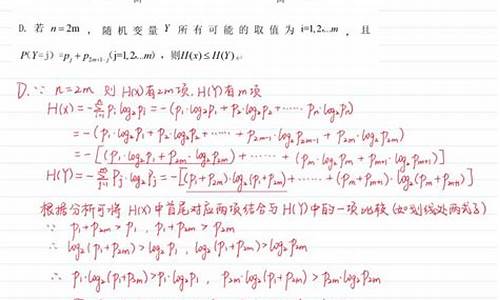 D. 若 n=2m ，随机变量 Y 所有可能的取值为 i=1,2...m ，且
P(Y=j) =p_j+p_{2m+1-j}(j=1,2...m) ，则H(x)≤H(Y).
D. ∵ n=2m 则 H(X)有2m项, H(Y)有m项
H(X)=-∑p_i log₂p_i=-(p₁·log₂p₁+p₂·log₂p₂+……p_n·log₂p_n)
=-(p₁·log₂p₁+p₂·log₂p₂+……+p_{2m-1}·log₂p_{2m-1}+p_{2m}·log₂p_{2m})
=-[(p₁·log₂p₁+p_{2m}·log₂p_{2m})+……+(p_m·log₂p_m+p_{m+1}·log₂p_{m+1})]
H(Y)=-∑p_j·log₂p_j=-[(p₁+p_{2m})·log₂(p₁+p_{2m})+……+(p_m+p_{m+1})·log₂(p_m+p_{m+1})]
根据分析可将 H(X)中首尾对应两项结合与H(Y)中的一项比较(如划线处两式)
∵ p₁+p_{2m}>p₁ , p₁+p_{2m}>p_{2m}
∴ log₂(p₁+p_{2m})>log₂p₁ , log₂(p₁+p_{2m})>log₂p_{2m}
∴ p₁·log₂(p₁+p_{2m})>p₁·log₂p₁ , p_{2m}·log₂(p₁+p_{2m})>p_{2m}·log₂p_{2m}